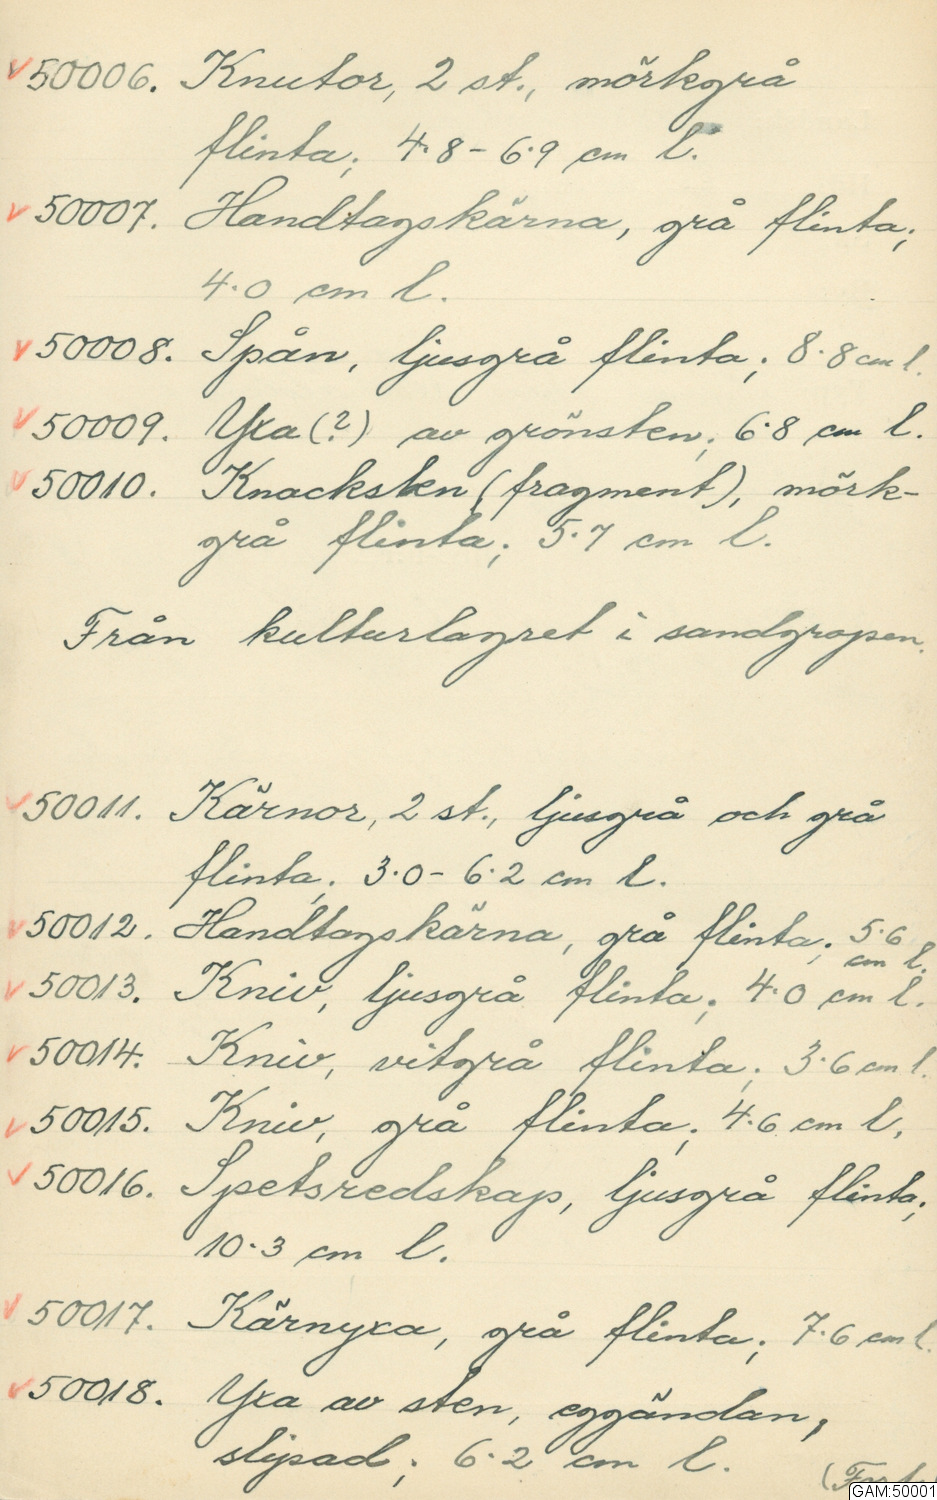 v 50006. Knutor, 2 st., mörkgrå
flinta; 4.8 - 6.9 cm l.
v 50007. Handtagskärna, grå flinta;
4.0 cm l.
v 50008. Spån, ljusgrå flinta; 8.8 cm l.
v 50009. Yxa (?) av grönsten; 6.8 cm l.
v 50010. Knacksten (fragment), mörk-
grå flinta; 5.7 cm l.
Från kulturlagret i sandgropen.
v 50011. Kärnor, 2 st., ljusgrå och grå
flinta; 3.0 - 6.2 cm l.
v 50012. Handtagskärna, grå flinta; 5.6
cm l.
v 50013. Kniv, ljusgrå flinta; 4.0 cm l.
v 50014. Kniv, vitgrå flinta; 3.6 cm l.
v 50015. Kniv, grå flinta; 4.6 cm l.
v 50016. Spetsredskap, ljusgrå flinta;
10.3 cm l.
v 50017. Kärnyxa, grå flinta; 7.6 cm l.
v 50018. Yxa av sten, eggändan,
slipad; 6.2 cm l.
GAM:50001